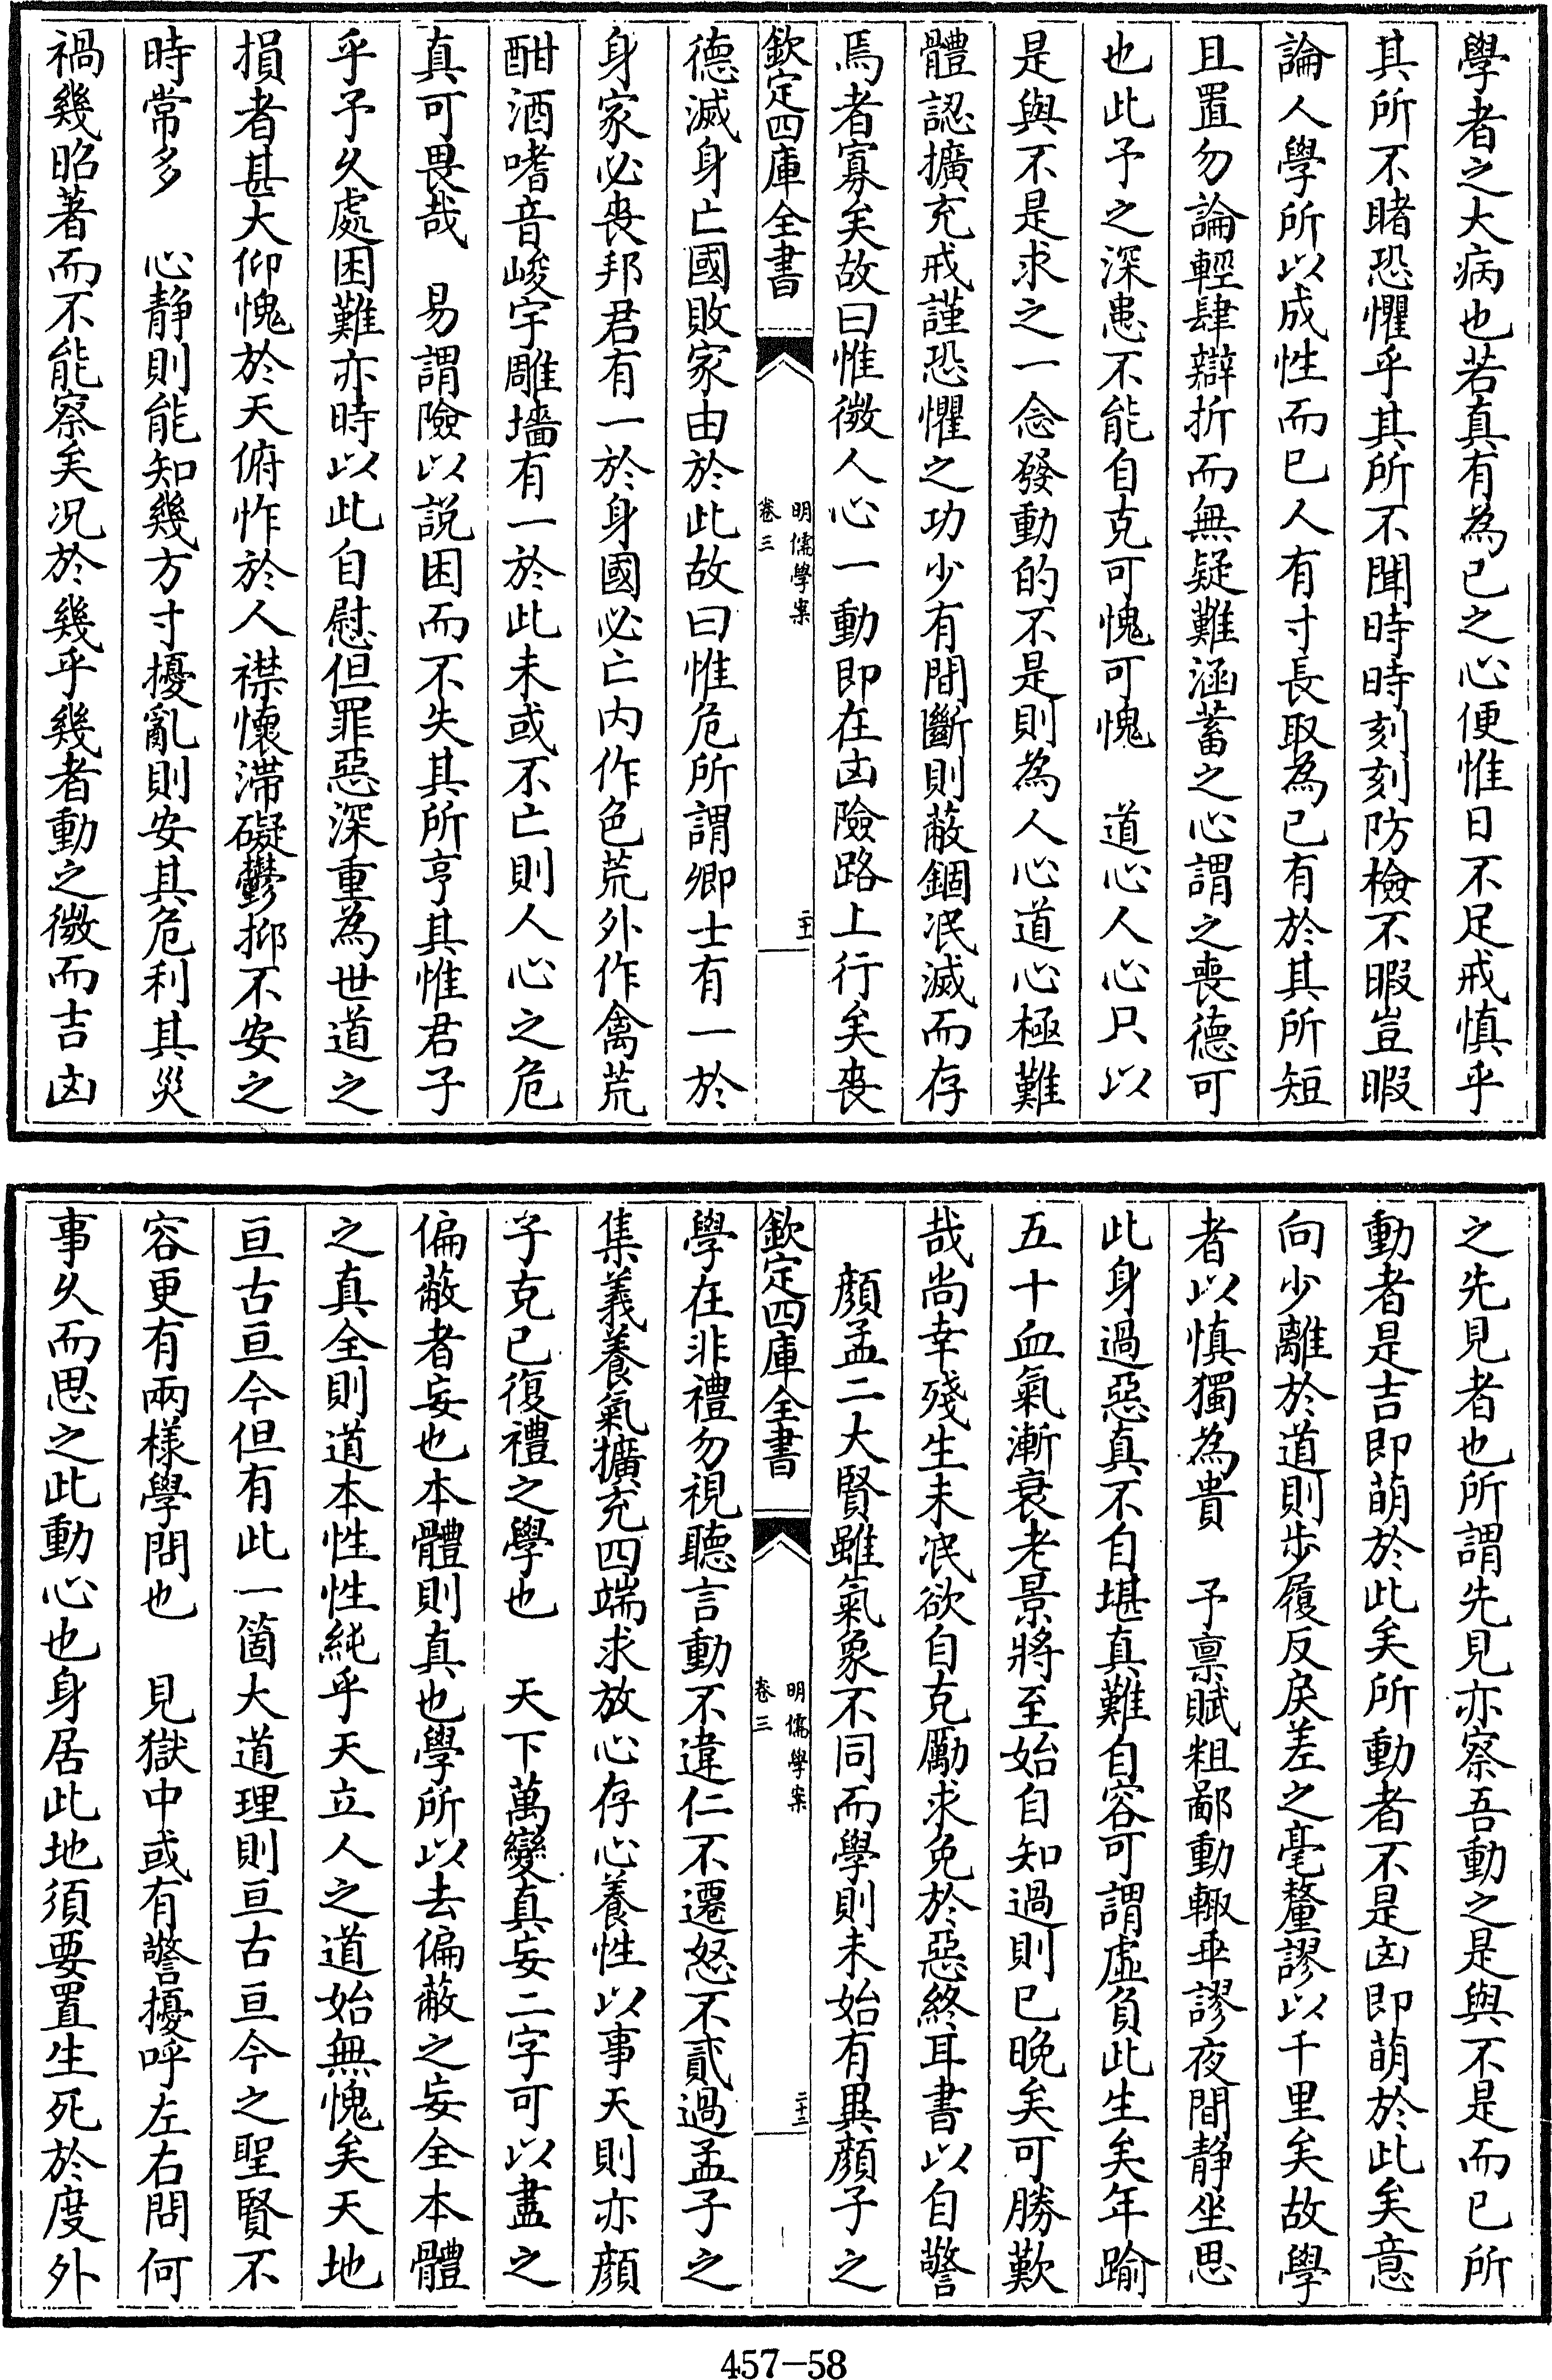 學者之大病也若真有為已之心便惟日不足戒慎乎
其所不睹恐懼乎其所不聞時時刻刻防檢不暇豈暇
論人學所以成性而已人有寸長取為已有於其所短
且置勿論輕肆辯折而無疑難涵蓄之心謂之喪德可
也此予之深患不能自克可愧可愧　道心人心只以
是與不是求之一念發動的不是則為人心道心極難
體認擴充戒謹恐懼之功少有間斷則蔽錮泯滅而存
焉者寡矣故曰惟微人心一動即在凶險路上行矣喪
欽定四庫全書
明儒學案
卷三
二十一
德滅身亡國敗家由於此故曰惟危所謂卿士有一於
身家必喪邦君有一於身國必亡內作色荒外作禽荒
酣酒嗜音峻宇雕墻有一於此未或不亡則人心之危
真可畏哉　易謂險以說困而不失其所亨其惟君子
乎予久處困難亦時以此自慰但罪惡深重為世道之
損者甚大仰愧於天俯怍於人襟懷滯礙鬱抑不安之
時常多　心静則能知幾方寸擾亂則安其危利其災
禍幾昭著而不能察矣况於幾乎幾者動之微而吉凶
之先見者也所謂先見亦察吾動之是與不是而已所
動者是吉即萌於此矣所動者不是凶即萌於此矣意
向少離於道則步履反戾差之毫釐謬以千里矣故學
者以慎獨為貴　予禀賦粗鄙動輒乖謬夜間静坐思
此身過惡真不自堪真難自容可謂虛負此生矣年踰
五十血氣漸衰老景將至始自知過則已晚矣可勝歎
哉尚幸殘生未泯欲自克勵求免於惡終耳書以自警
顏孟二大賢雖氣象不同而學則未始有異顏子之
欽定四庫全書
明儒學案
卷三
二十二
學在非禮勿視聽言動不違仁不遷怒不貳過孟子之
集義養氣擴充四端求放心存心養性以事天則亦顏
子克已復禮之學也　天下萬變真妄二字可以盡之
偏蔽者妄也本體則真也學所以去偏蔽之妄全本體
之真全則道本性性純乎天立人之道始無愧矣天地
亘古亘今但有此一箇大道理則亘古亘今之聖賢不
容更有兩樣學問也　見獄中或有警擾呼左右問何
事久而思之此動心也身居此地須要置生死於度外
457—58